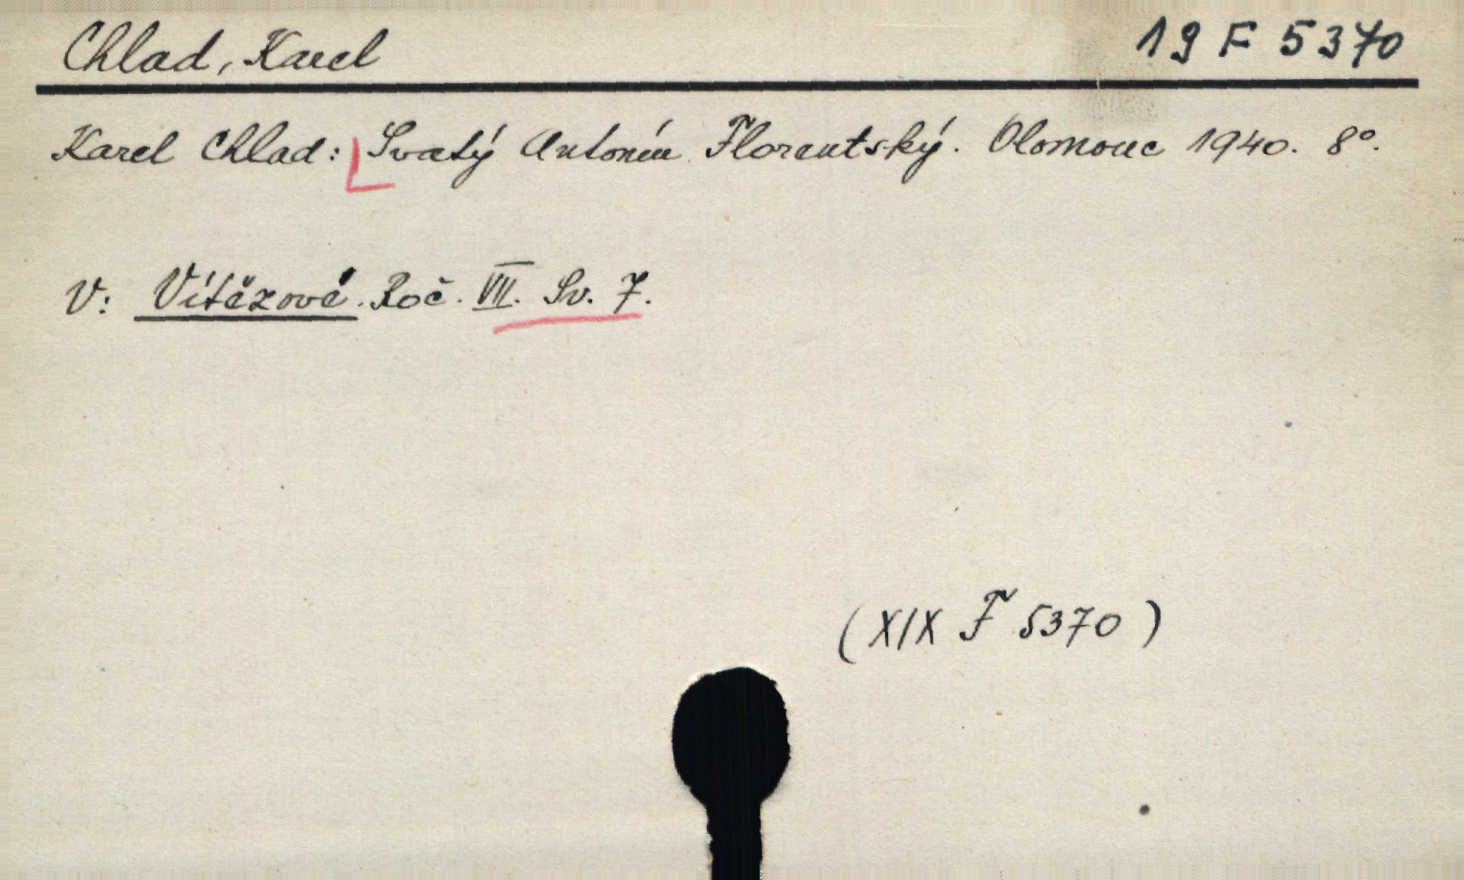 Chlad, Karel 19 F 5370
Karel Chlad: Svatý Antonín Florentský. Olomouc 1940. 8°.
V: Vítězové. Roč. VII. Sv. 7.
(XIX F 5370)